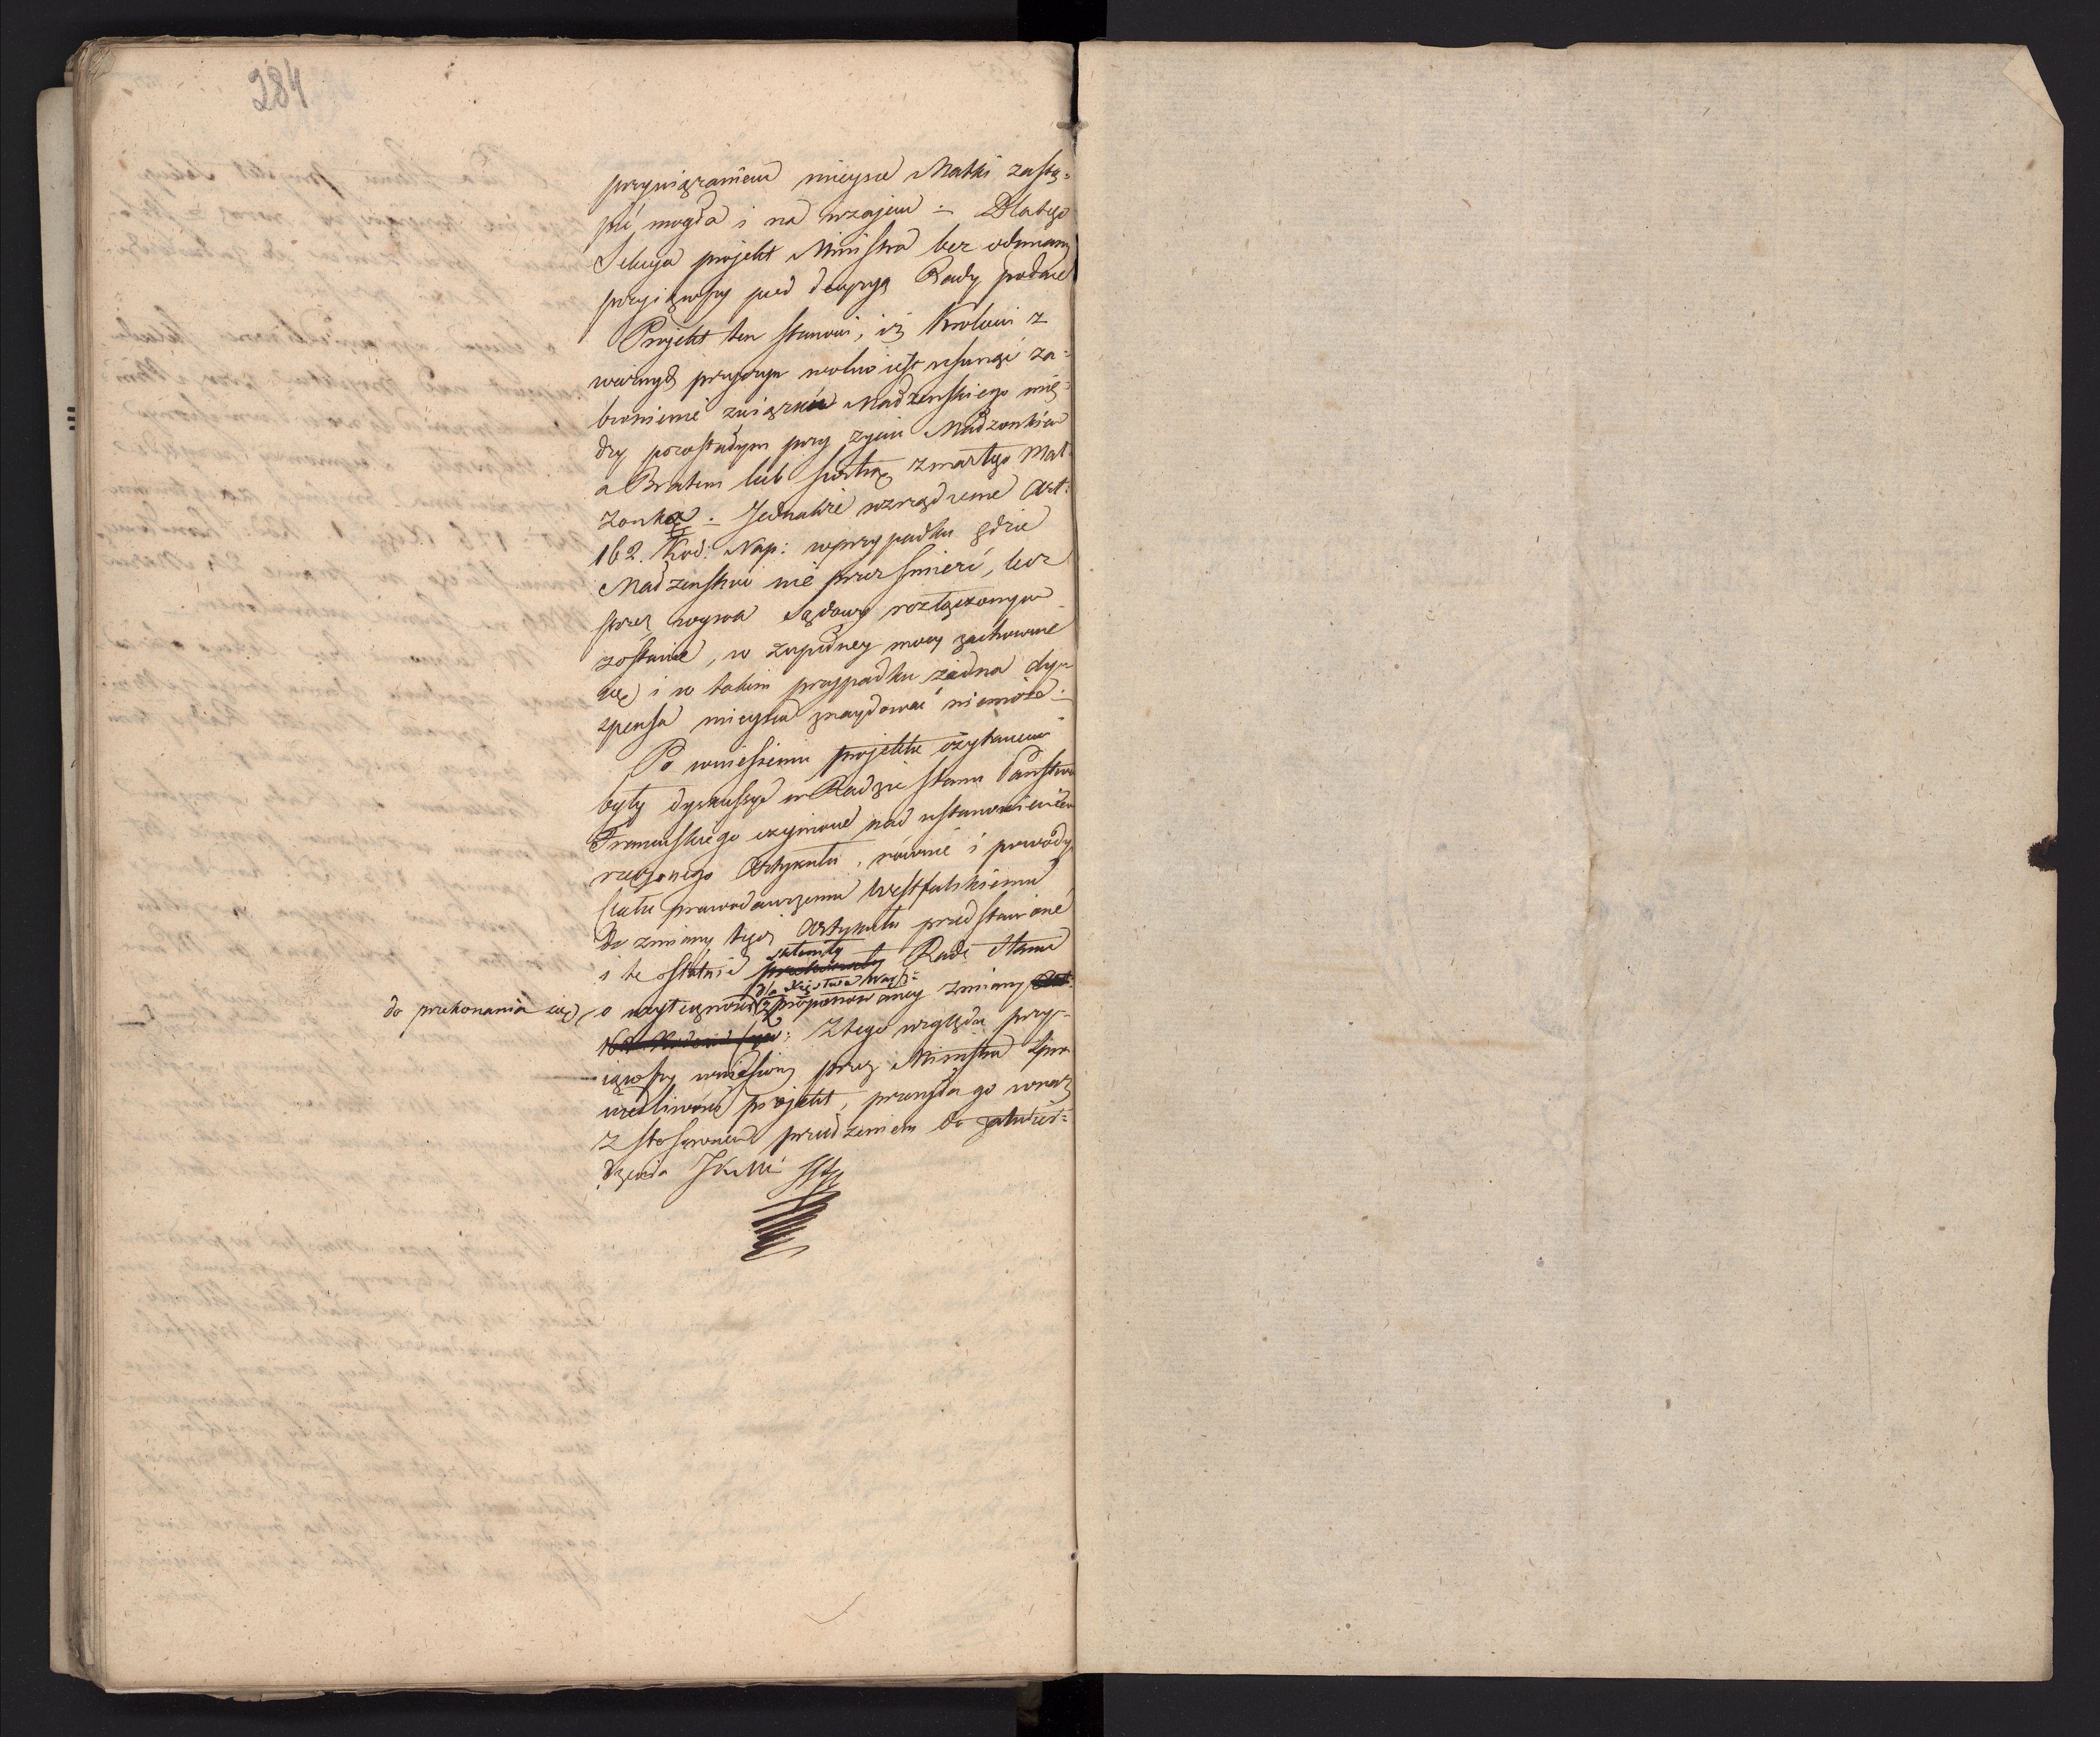 284
przywiązaniem mieysce Matki zastą-
pić mogła i na wzajem. Dlatego
Sekcya projekt Ministra bez odmiany
przyiąwszy pod decyzyą Rady podaie
Projekt ten stanowi, iż Krolowi z
ważnych przyczyn wolno iest usunąć za-
bronienie związku Małżeńskiego mię-
dzy pozostałym przy życiu Małżonkiem
a Bratem lub siostrą zmarłego Mał-
żonka. Jednakże urządzenie Art:
162. Kod: Nap: w przypadku gdzie
Małżeństwo nie przez śmierć, lecz
przez wyrok Sądowy rozłączonym
zostanie, w zupełney mocy zachowuie
się i w takim przypadku żadna dys-
pensa mieysca znaydować niemoże.
Po wniesieniu projektu czytanemi
były dyskussye w Radzie Stanu Państwa
Francuskiego czynione nad ustanowieniem
rzeczonego Artykułu, rownie i powody
Ciału prawodawczemu Westfalskiemu
do zmiany tegoż Artykułu przedstawione
i te ostatnie skłoniły Radę Stanu
do przekonania się o użyteczności dla Xięstwa Warsz: proponowaney zmiany
Z tego względu przy-
iąwszy wniesiony przez Ministra Spra-
wiedliwości projekt, przesyła go wraz
z stosownem przełożeniem do zatwier-
dzenia JKMci